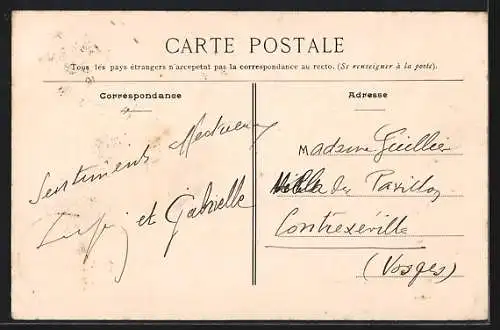 CARTE POSTALE
Tous les pays étrangers n'acceptent pas la correspondance au recto. (Se renseigner à la poste).
Correspondance
Adresse
Sentiments
et Gabrielle
Madame Guillier
Villa du Pavillon
Contrexéville
(Vosges)